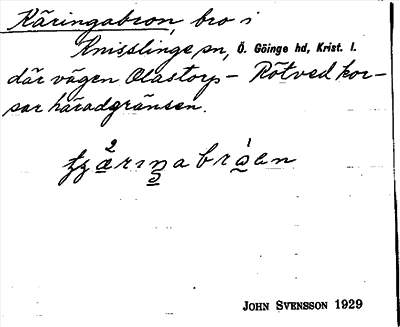 Käringabron, bro i
Knisslinge sn, Ö. Göinge hd, Krist. l.
där vägen Olastorp – Rötved kor-
sar häradgränsen.
JOHN SVENSSON 1929